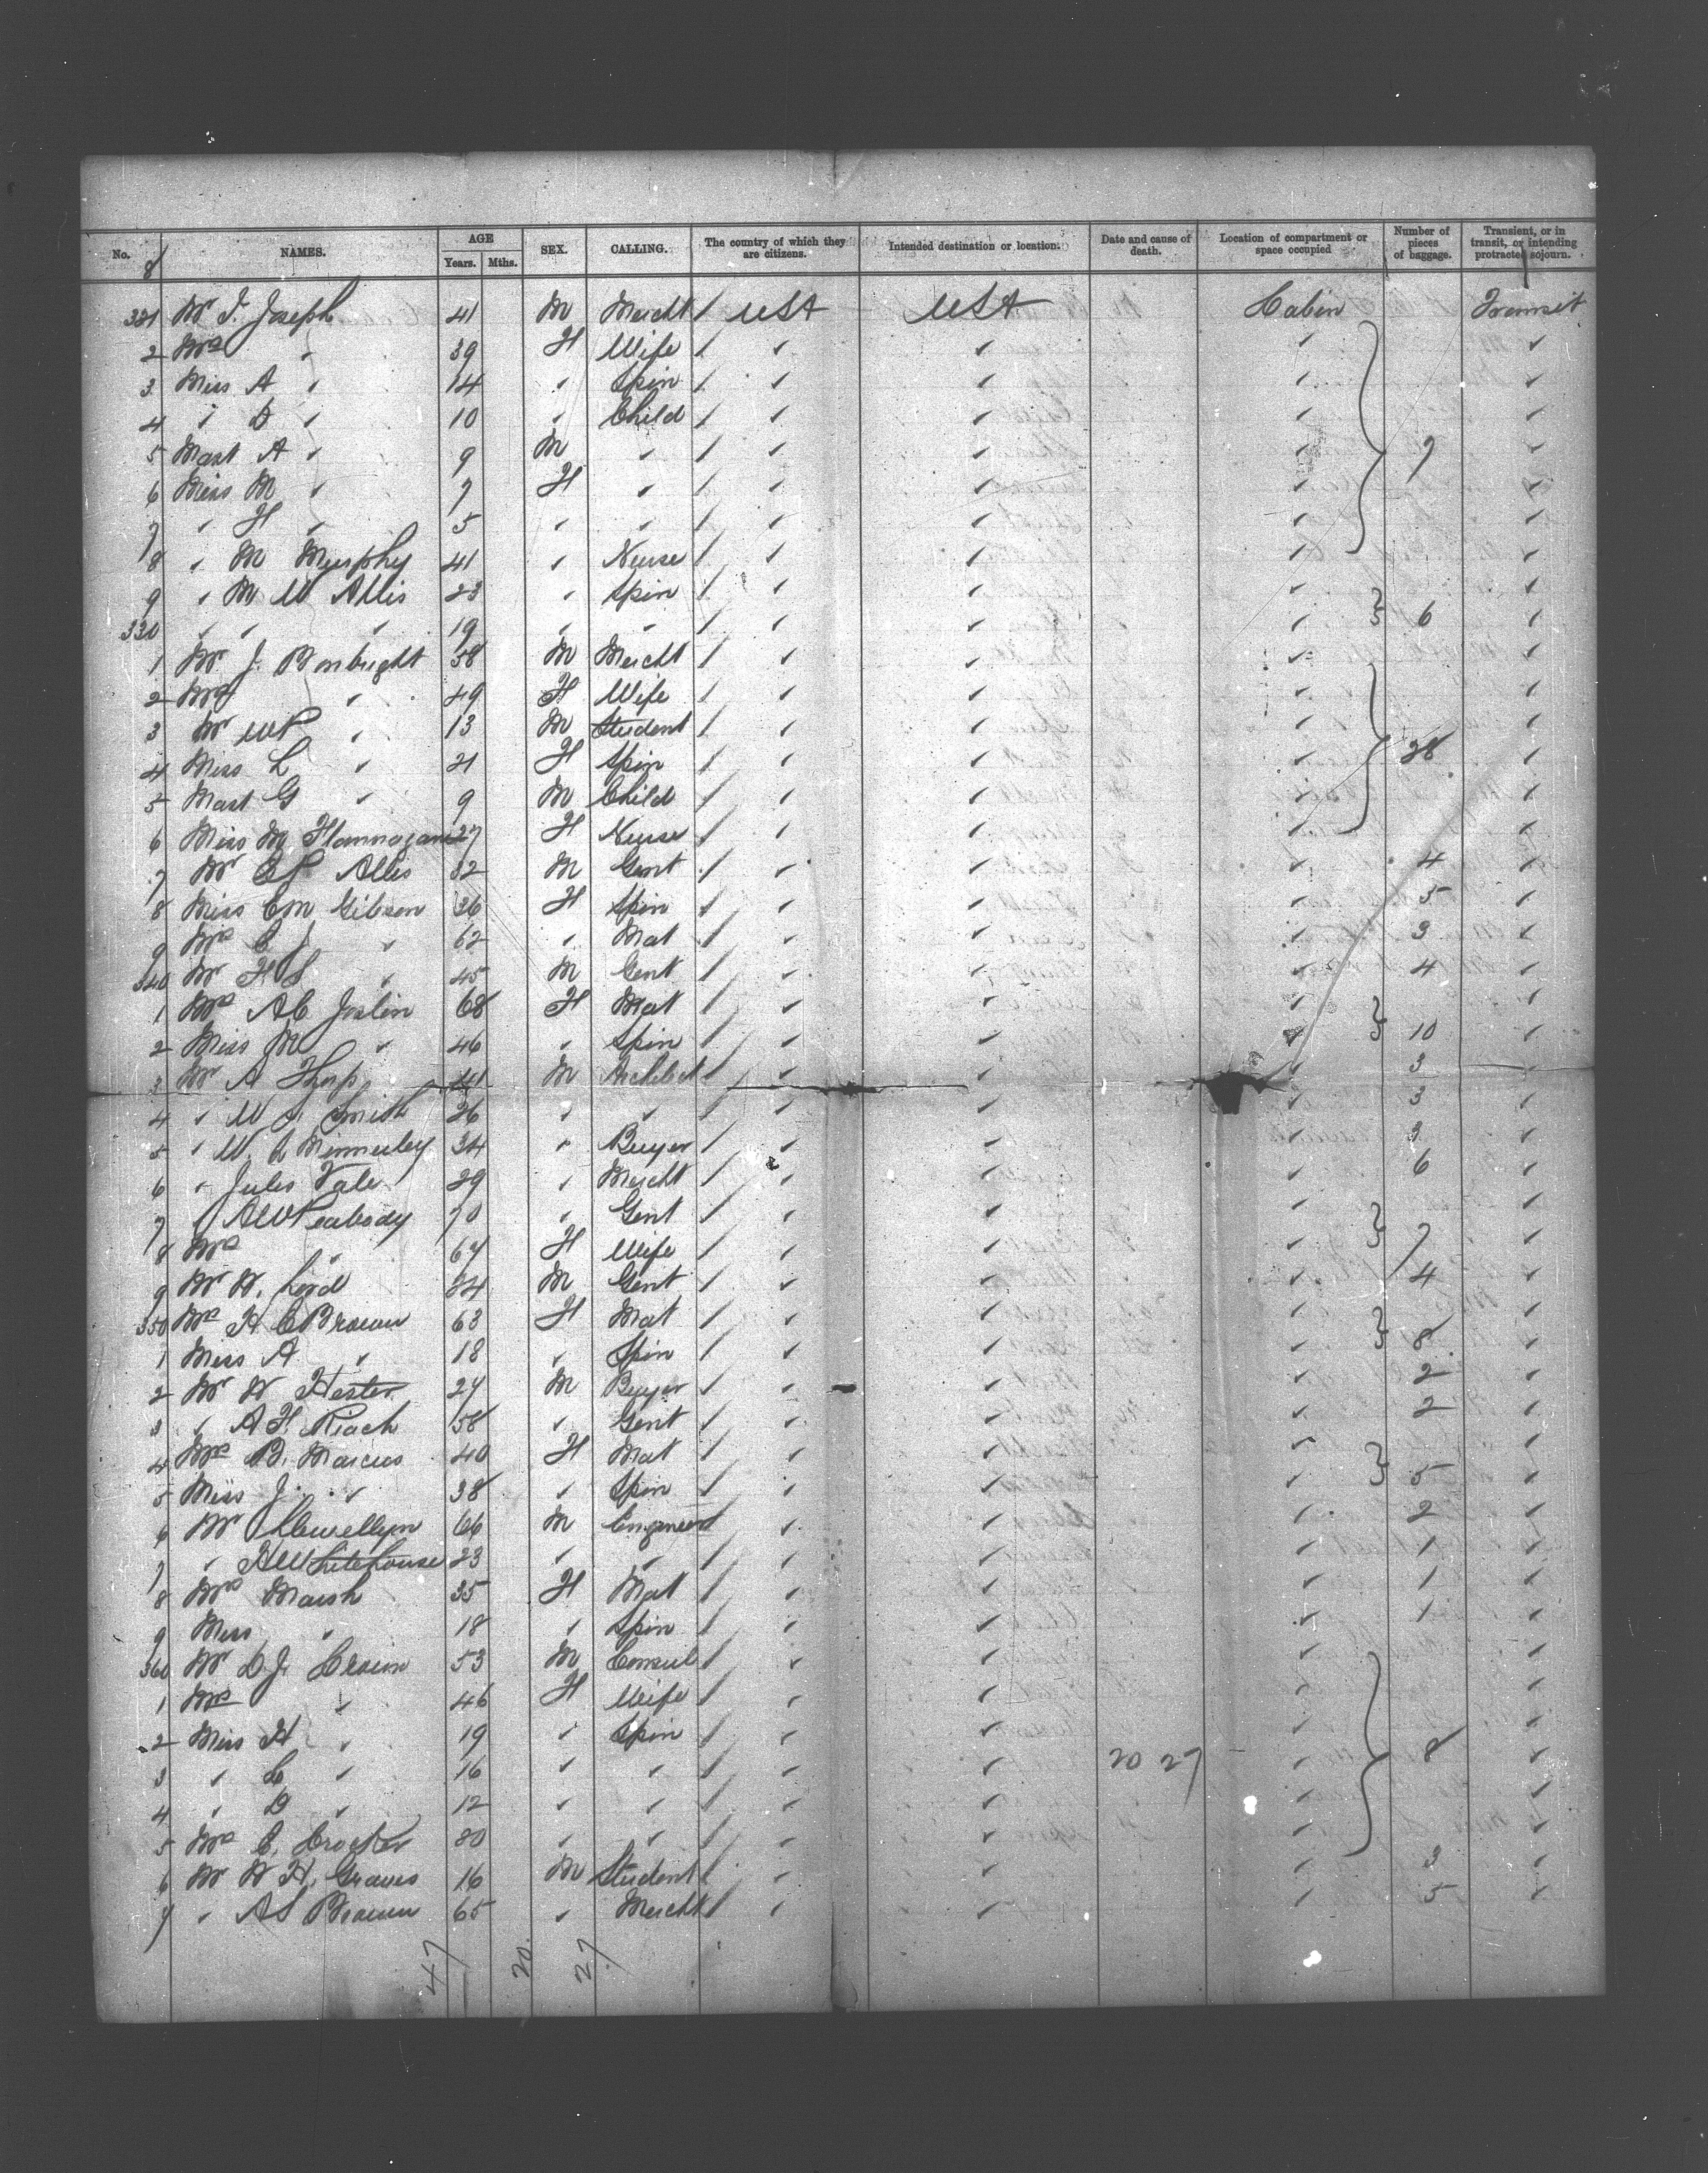 No. NAMES. AGE Years. Mths. SEX. CALLING. The country of which they are citizens. Intended destination or location. Date and cause of death. Location of compartment or space occupied Number of pieces of baggage. Transient, or in transit, or intending protracted sojourn.
8
321 Mr J. Joseph 41 M Mercht / USA USA Cabin Transit
2 Mrs " 39 F Wife / " " " "
3 Miss A " 14 " Spin / " " " "
4 " D " 10 " Child / " " " "
5 Mast A " 9 M " / " " " 7 "
6 Miss M " 7 F " / " " " "
7 " H " 5 " " / " " " "
8 " M Murphy 41 " Nurse / " " " "
9 " M W Allis 23 " Spin / " " " "
330 " " " 19 " " / " " " 6 "
1 Mr J. Bonbright 58 M Mercht / " " " "
2 Mrs " 49 F Wife / " " " "
3 Mr WP " 13 M Student / " " " "
4 Miss L " 21 F Spin / " " " 28 "
5 Mast G " 9 M Child / " " " "
6 Miss M Flannagan 27 F Nurse / " " " "
7 Mr Allis 32 M Gent / " " " 4 "
8 Miss EM Gibson 36 F Spin / " " " 5 "
9 Mrs C J " 62 " Mat / " " " 3 "
340 Mr HS " 45 M Gent / " " " 4 "
1 Mrs AC Joslin 68 F Mat / " " " "
2 Miss M " 46 " Spin / " " " 10 "
3 Mr A Thorp 41 M Architect / " " " 3 "
4 " W J. Smith 26 " " / " " " 3 "
5 " W. 34 " Buyer / " " " 3 "
6 " Jules Vale 29 " Mercht / " " " 6 "
7 " AW Peabody 70 " Gent / " " " "
8 Mrs " 67 F Wife / " " " 7 "
9 Mr W. Lord 24 M Gent / " " " 4 "
350 Mrs H C Brown 63 F Mat / " " " "
1 Miss A " 18 " Spin / " " " 8 "
2 Mr W Hester 27 M Buyer / " " " 2 "
3 " A F. Riach 58 " Gent / " " " 2 "
4 Mrs B. Marcus 40 F Mat / " " " "
5 Miss J. " 38 " Spin / " " " 5 "
6 Mr Llewellyn 66 M Engineer / " " " 2 "
7 " H Whitehouse 23 " " / " " " 1 "
8 Mrs Marsh 35 F Mat / " " " 1 "
9 Miss " 18 " Spin / " " " 1 "
360 Mr D J. 53 M Consul / " " " "
1 Mrs " 46 F Wife / " " " "
2 Miss H " 19 " Spin / " " " "
3 " L " 16 " " / " " 20 27 " 8 "
4 " D " 12 " " / " " " "
5 Mrs C. Crocker 80 " " / " " " "
6 Mr W H. Graves 16 M Student / " " " 3 "
7 " AS Brown 65 " Mercht / " " " 5 "
47 20. 27.